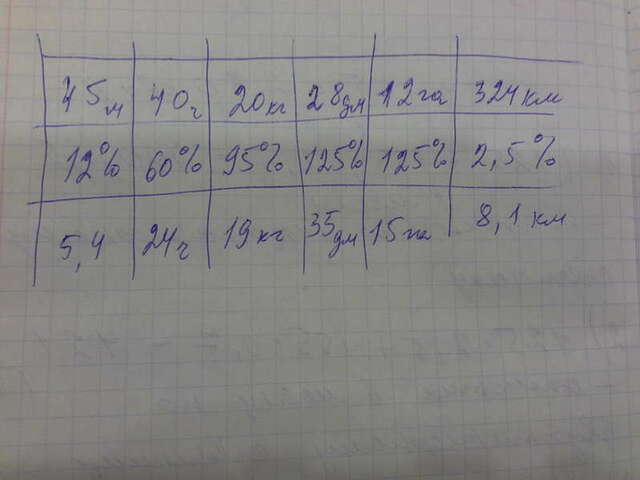 45м 40ч 20кг 28дм 12га 324км
12% 60% 95% 125% 125% 2,5%
5,4 24ч 19кг 35дм 15га 8,1км